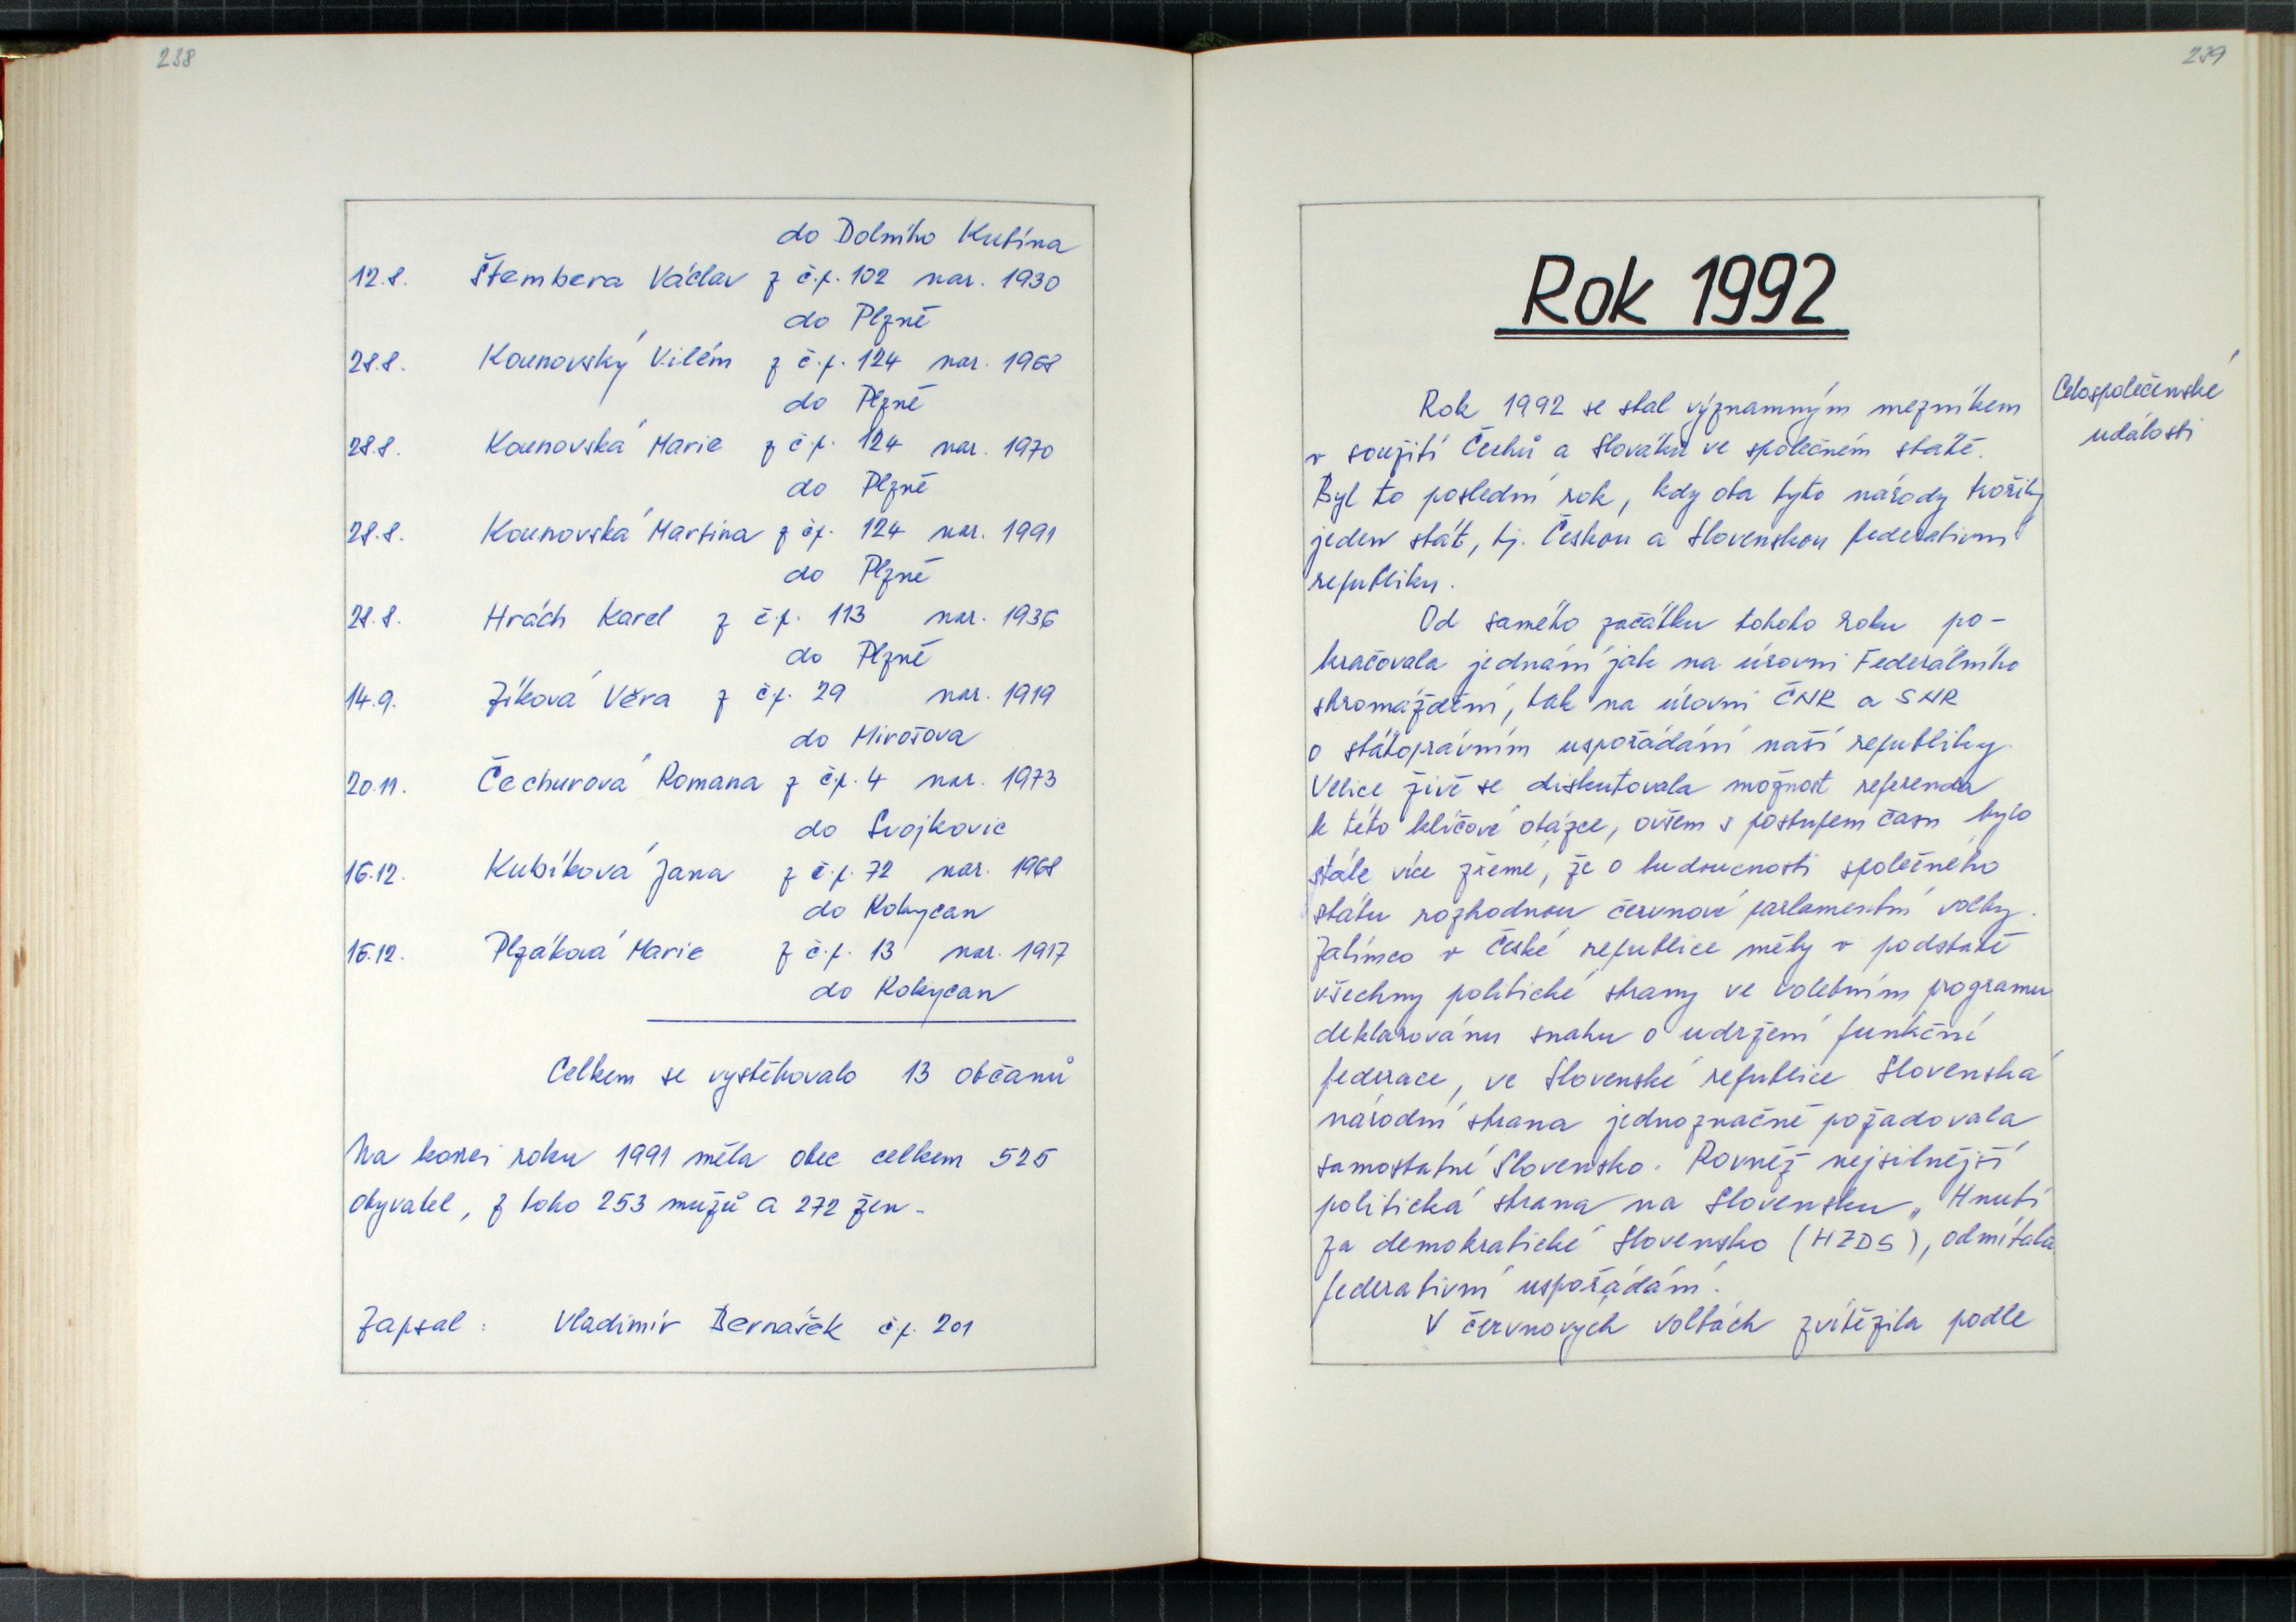 238
do Dolního Kubína
12.8. Štembera Václav z č.p. 102 nar. 1930
do Plzně
28.8. Kounovský Vilém z č.p. 124 nar. 1968
do Plzně
28.8. Kounovská Marie z č.p. 124 nar. 1970
do Plzně
28.8. Kounovská Martina z čp. 124 nar. 1991
do Plzně
28.8. Hrách Karel z č.p. 113 nar. 1936
do Plzně
14.9. Zíková Věra z č.p. 29 nar. 1919
do Mirošova
20.11. Čechurová Romana z č.p. 4 nar. 1973
do Svojkovic
16.12. Kubíková Jana z č.p. 72 nar. 1968
do Rokycan
16.12. Plzáková Marie z č.p. 13 nar. 1917
do Rokycan
Celkem se vystěhovalo 13 občanů
Na konci roku 1991 měla obec celkem 525
obyvatel, z toho 253 mužů a 272 žen.
Zapsal: Vladimír Bernášek č.p. 201
239
Rok 1992
Celospolečenské
události
Rok 1992 se stal významným mezníkem
v soužití Čechů a Slováků ve společném státě.
Byl to poslední rok, kdy oba tyto národy tvořily
jeden stát, tj. Českou a Slovenskou federativní
republiku.
Od samého začátku tohoto roku po-
kračovala jednání jak na úrovni Federálního
shromáždění, tak na úrovni ČNR a SNR
o státoprávním uspořádání naší republiky.
Velice živě se diskutovala možnost referenda
k této klíčové otázce, ovšem s postupem času bylo
stále více zřemé, že o budoucnosti společného
státu rozhodnou červnové parlamentní volby.
Zatímco v České republice měly v podstatě
všechny politické strany ve volebním programu
deklarovánu snahu o udržení funkční
federace, ve Slovenské republice Slovenská
národní strana jednoznačně požadovala
samostatné Slovensko. Rovněž nejsilnější
politická strana na Slovensku „Hnutí
za demokratické Slovensko (HZDS), odmítala
federativní uspořádání.
V červnových volbách zvítězila podle